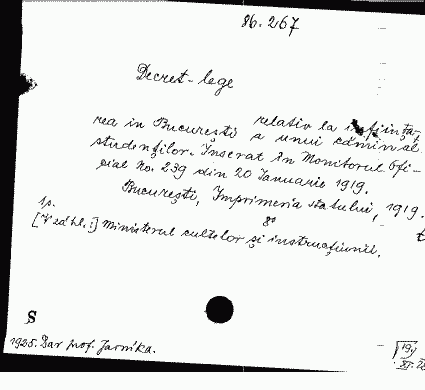 86.267
Decret-lege
relativ la înființa-
rea în București a unui cămin al
studenților. Inserat in Monitorul Ofi-
cial No. 239 din 20 Ianuarie 1919.
București, Imprimeria statului, 1919.
8°
1p.
[V záhl.:] Ministerul cultelor și instrucțiunii.
S
1925. Dar prof. Jarníka.